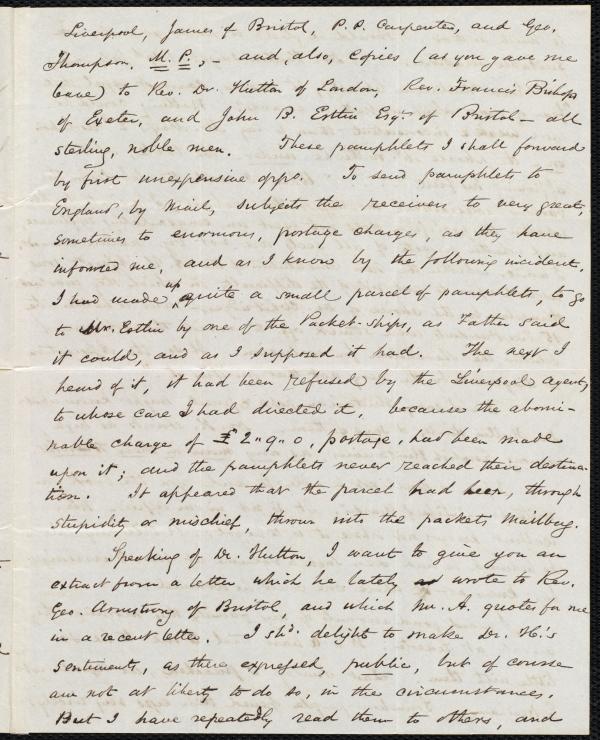 Liverpool, James of Bristol, P. P. Carpenter, and Geo.
Thompson, M. P., – and, also, copies (as you gave me
leave) to Rev. Dr. Hutton of London, Rev. Francis Bishop
of Exeter, and John B. Estlin Esqr. of Bristol – all
sterling, noble men. These pamphlets I shall forward
by first unexpensive oppo. To send pamphlets to
England, by Mail, subjects the receivers to very great,
sometimes to enormous, postage charges, as they have
informed me, and as I know by the following incident.
I had made up quite a small parcel of pamphlets, to go
to Mr. Estlin by one of the Packet-ships, as Father said
it could, and as I supposed it had. The next I
heard of it, it had been refused by the Liverpool agent,
to whose care I had directed it, because the abomi-
nable charge of £2"9"0, postage, had been made
upon it; and the pamphlets never reached their destina-
tion. It appeared that the parcel had been, through
stupidity or mischief, thrown into the packets mailbag.
Speaking of Dr. Hutton, I want to give you an
extract from a letter which he lately wrote to Rev.
Geo. Armstrong of Bristol, and which Mr. A. quotes for me
in a recent letter. I shd. delight to make Dr. H's
sentiments, as there expressed, public, but of course
am not at liberty to do so, in the circumstances.
But I have repeatedly read them to others, and